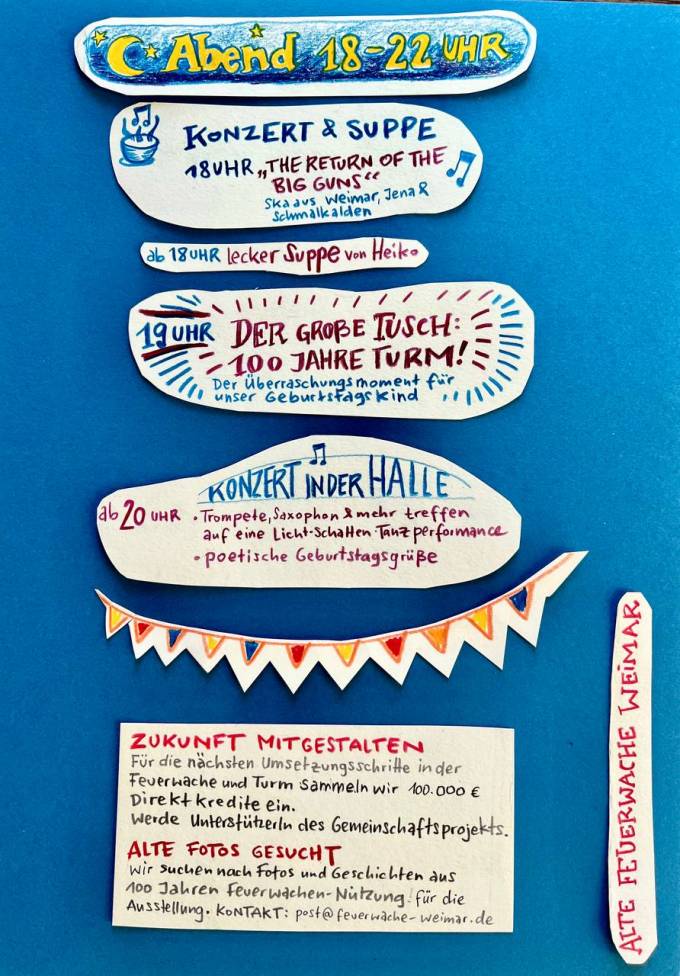 Abend 18-22 UHR
KONZERT & SUPPE
18 UHR „THE RETURN OF THE
BIG GUNS“
Ska aus Weimar, Jena &
Schmalkalden
ab 18 UHR lecker Suppe von Heiko
19 UHR DER GROßE TUSCH:
100 JAHRE TURM!
Der Überraschungsmoment für
unser Geburtstagskind
KONZERT IN DER HALLE
ab 20 UHR
• Trompete, Saxophon & mehr treffen
auf eine Licht-Schatten-Tanzperformance
• poetische Geburtstagsgrüße
ZUKUNFT MITGESTALTEN
Für die nächsten Umsetzungsschritte in der
Feuerwache und Turm sammeln wir 100.000 €
Direktkredite ein.
Werde UnterstützerIn des Gemeinschaftsprojekts.
ALTE FOTOS GESUCHT
Wir suchen nach Fotos und Geschichten aus
100 Jahren Feuerwachen-Nutzung für die
Ausstellung. KONTAKT: post@feuerwache-weimar.de
ALTE FEUERWACHE WEIMAR